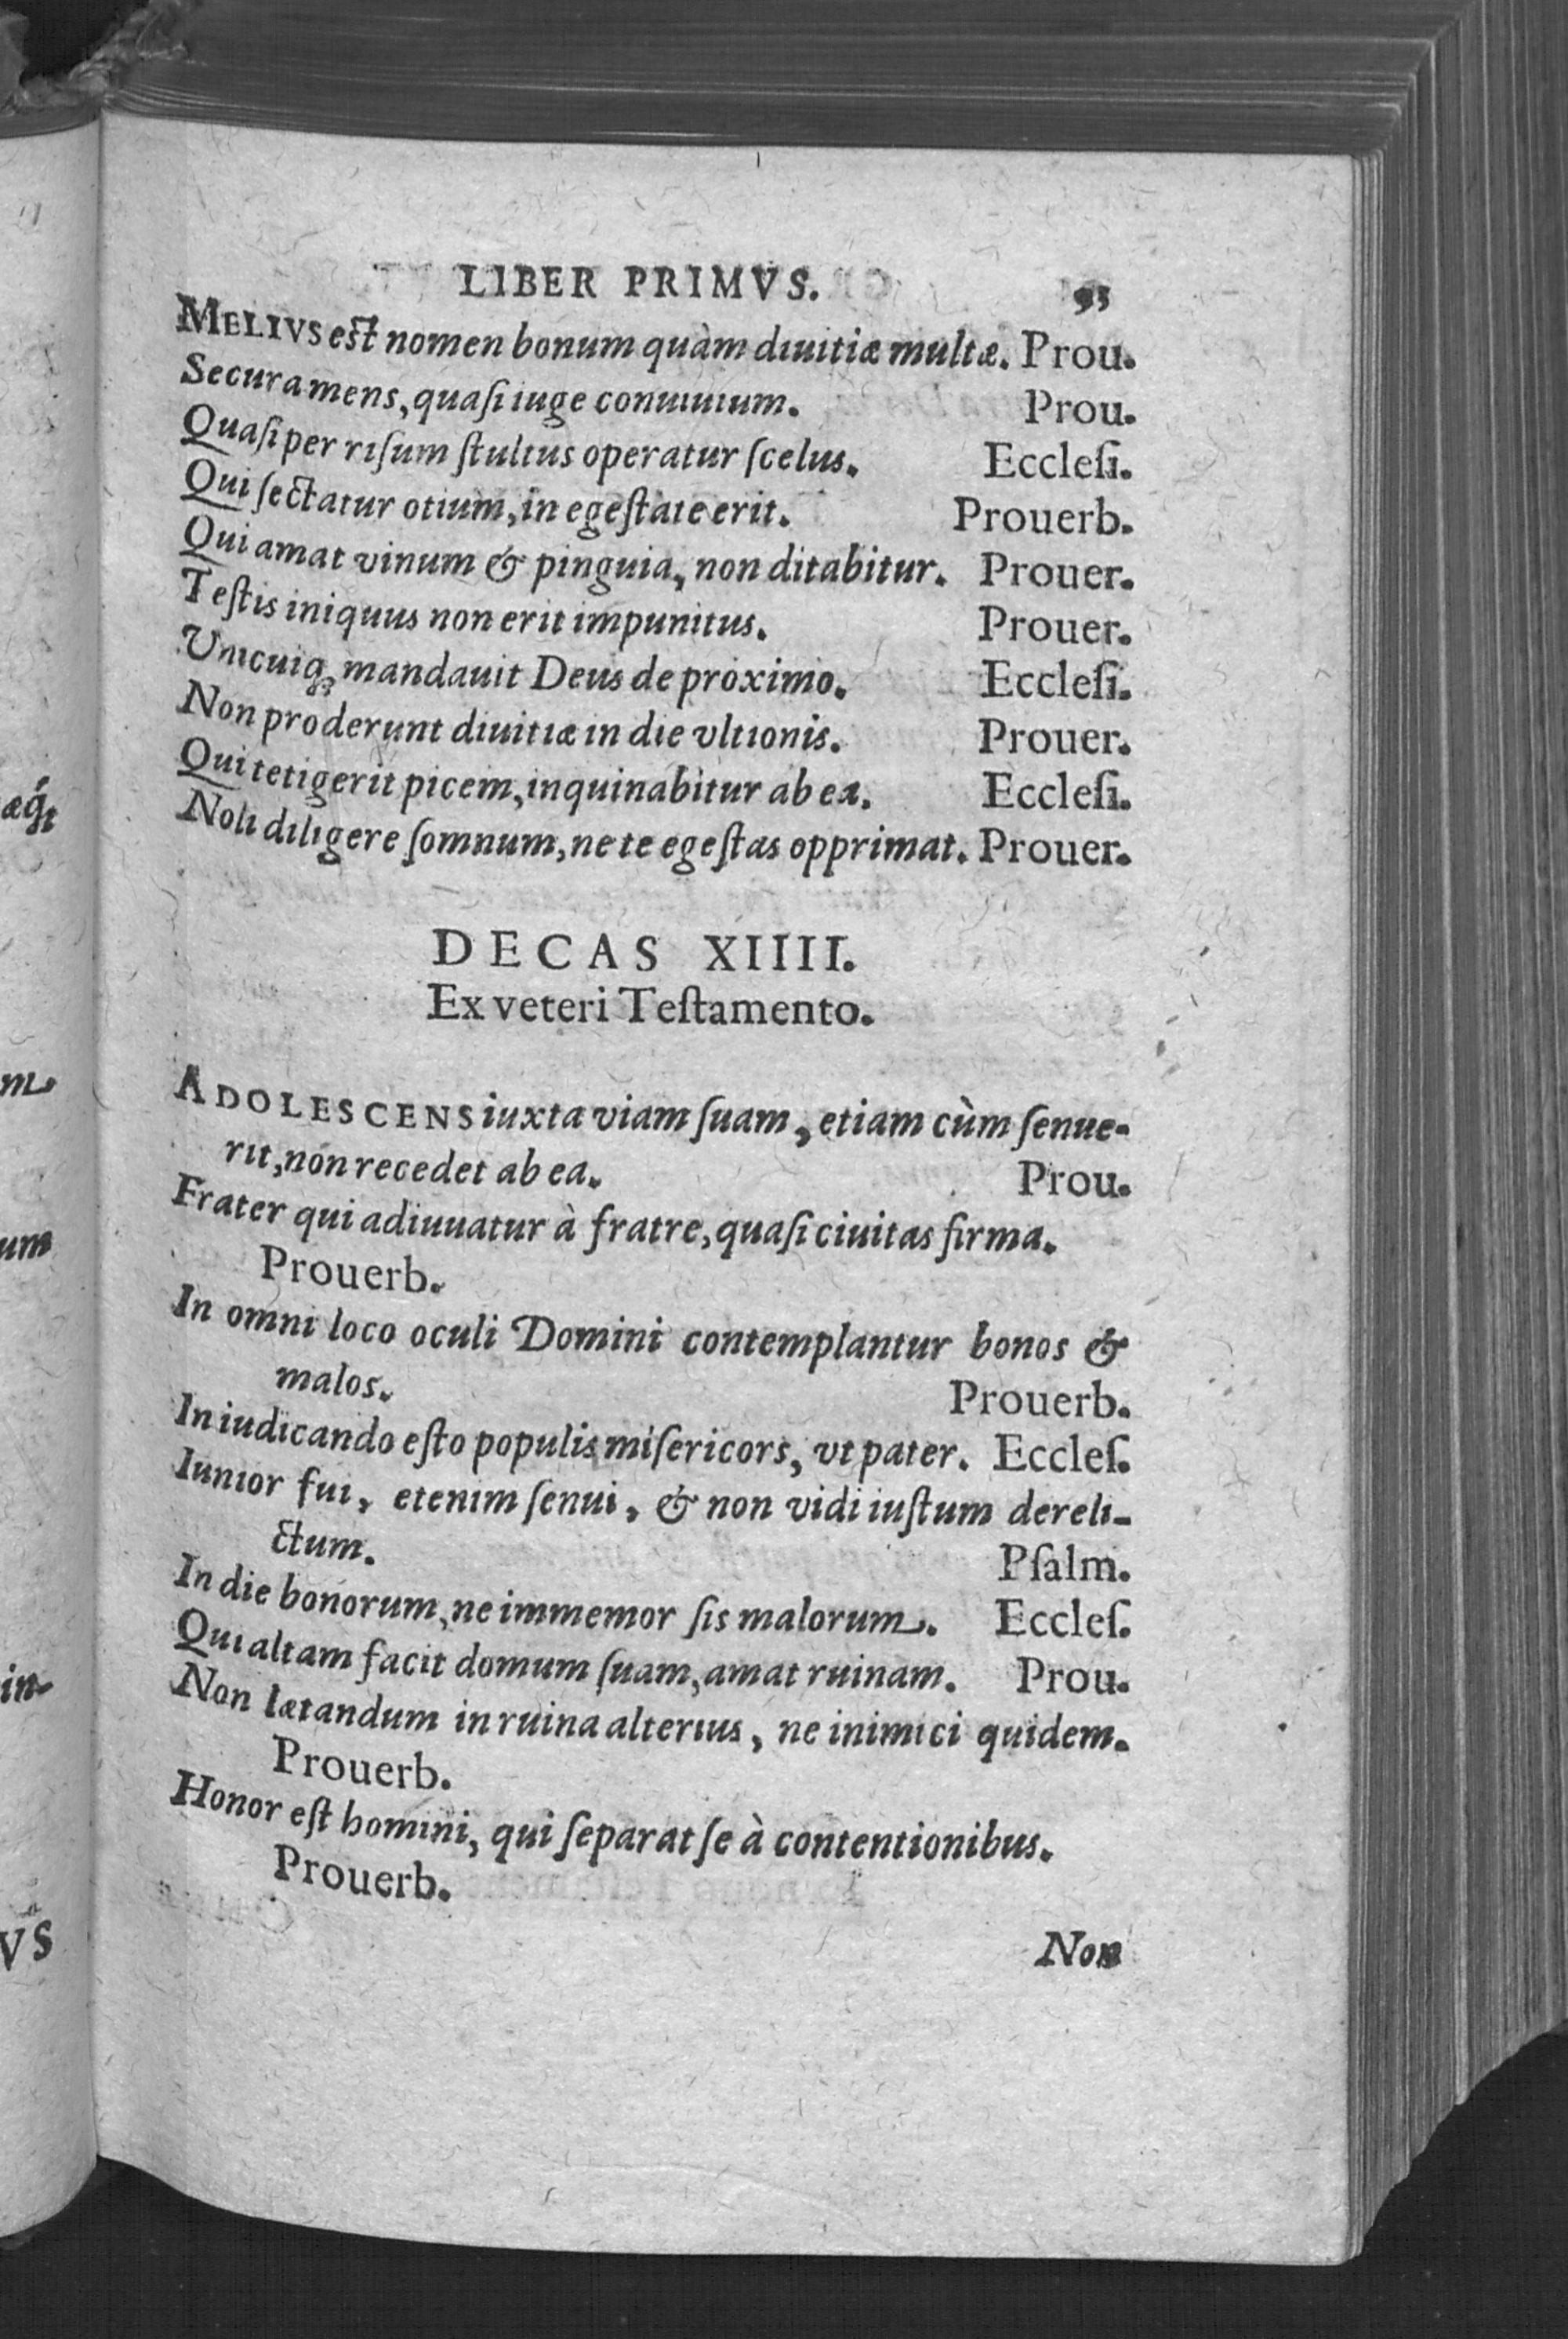 LIBER PRIMVS. 93
MELIVS est nomen bonum quàm diuitiæ multæ. Prou.
Secura mens, quaſi iuge conuiuium. Prou.
Quaſi per riſum ſtultus operatur ſcelus. Eccleſi.
Qui ſectatur otium, in egeſtate erit. Prouerb.
Qui amat vinum & pinguia, non ditabitur. Prouer.
Teſtis iniquus non erit impunitus. Prouer.
Vnicuiq; mandauit Deus de proximo. Eccleſi.
Non proderunt diuitiæ in die vltionis. Prouer.
Qui tetigerit picem, inquinabitur ab ea. Eccleſi.
Noli diligere ſomnum, ne te egeſtas opprimat. Prouer.
DECAS XIIII.
Ex veteri Teſtamento.
ADOLESCENS iuxta viam ſuam, etiam cùm ſenue-
rit, non recedet ab ea. Prou.
Frater qui adiuuatur à fratre, quaſi ciuitas firma.
Prouerb.
In omni loco oculi Domini contemplantur bonos &
malos. Prouerb.
In iudicando eſto populis miſericors, vt pater. Eccleſ.
Iunior fui, etenim ſenui, & non vidi iuſtum dereli-
ctum. Pſalm.
In die bonorum, ne immemor ſis malorum. Eccleſ.
Qui altam facit domum ſuam, amat ruinam. Prou.
Non lætandum in ruina alterius, ne inimici quidem.
Prouerb.
Honor eſt homini, qui ſeparat ſe à contentionibus.
Prouerb.
Non